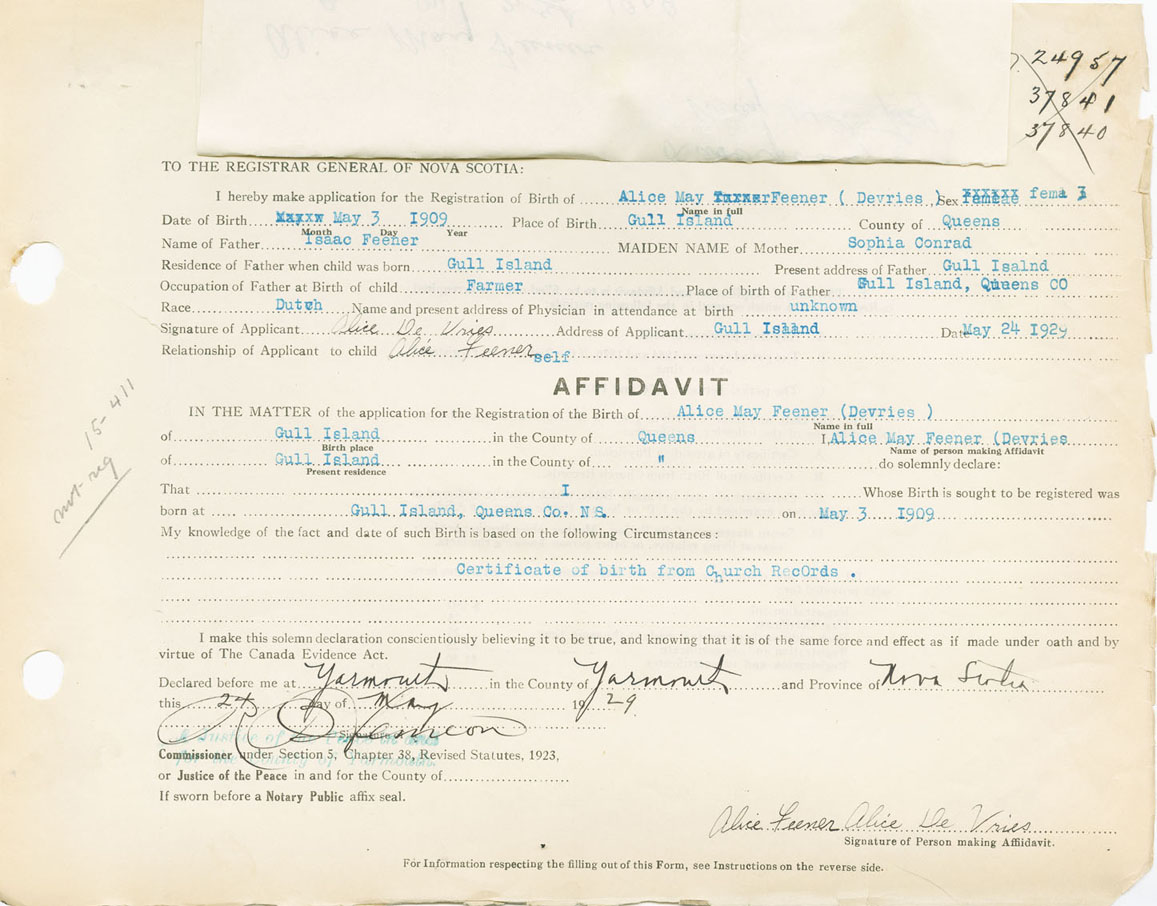 24957
37841
37840
TO THE REGISTRAR GENERAL OF NOVA SCOTIA:
I hereby make application for the Registration of Birth of Alice May Feener ( Devries ) Sex fema
Name in full
Date of Birth May 3 1909 Place of Birth Gull Island County of Queens
Month Day Year
Name of Father Isaac Feener MAIDEN NAME of Mother Sophia Conrad
Residence of Father when child was born Gull Island Present address of Father Gull Isalnd
Occupation of Father at Birth of child Farmer Place of birth of Father Gull Island, Queens CO
Race Dutch Name and present address of Physician in attendance at birth unknown
Signature of Applicant Alice De Vries Address of Applicant Gull Island Date May 24 1929
Relationship of Applicant to child Alice Feener self
AFFIDAVIT
IN THE MATTER of the application for the Registration of the Birth of Alice May Feener (Devries )
Name in full
of Gull Island in the County of Queens I, Alice May Feener (Devries
Birth place Name of person making Affidavit
of Gull Island in the County of " do solemnly declare:
Present residence
That I Whose Birth is sought to be registered was
born at Gull Island, Queens Co. NS. on May 3 1909
My knowledge of the fact and date of such Birth is based on the following Circumstances :
Certificate of birth from Church RecOrds .
I make this solemn declaration conscientiously believing it to be true, and knowing that it is of the same force and effect as if made under oath and by
virtue of The Canada Evidence Act.
Declared before me at Yarmouth in the County of Yarmouth and Province of Nova Scotia
this 24 day of May 1929
Signature
A Justice of the Peace in and
for the County of Yarmouth.
Commissioner under Section 5, Chapter 38, Revised Statutes, 1923,
or Justice of the Peace in and for the County of
If sworn before a Notary Public affix seal.
Alice Feener Alice De Vries
Signature of Person making Affiidavit.
For Information respecting the filling out of this Form, see Instructions on the reverse side.
15-411
not reg